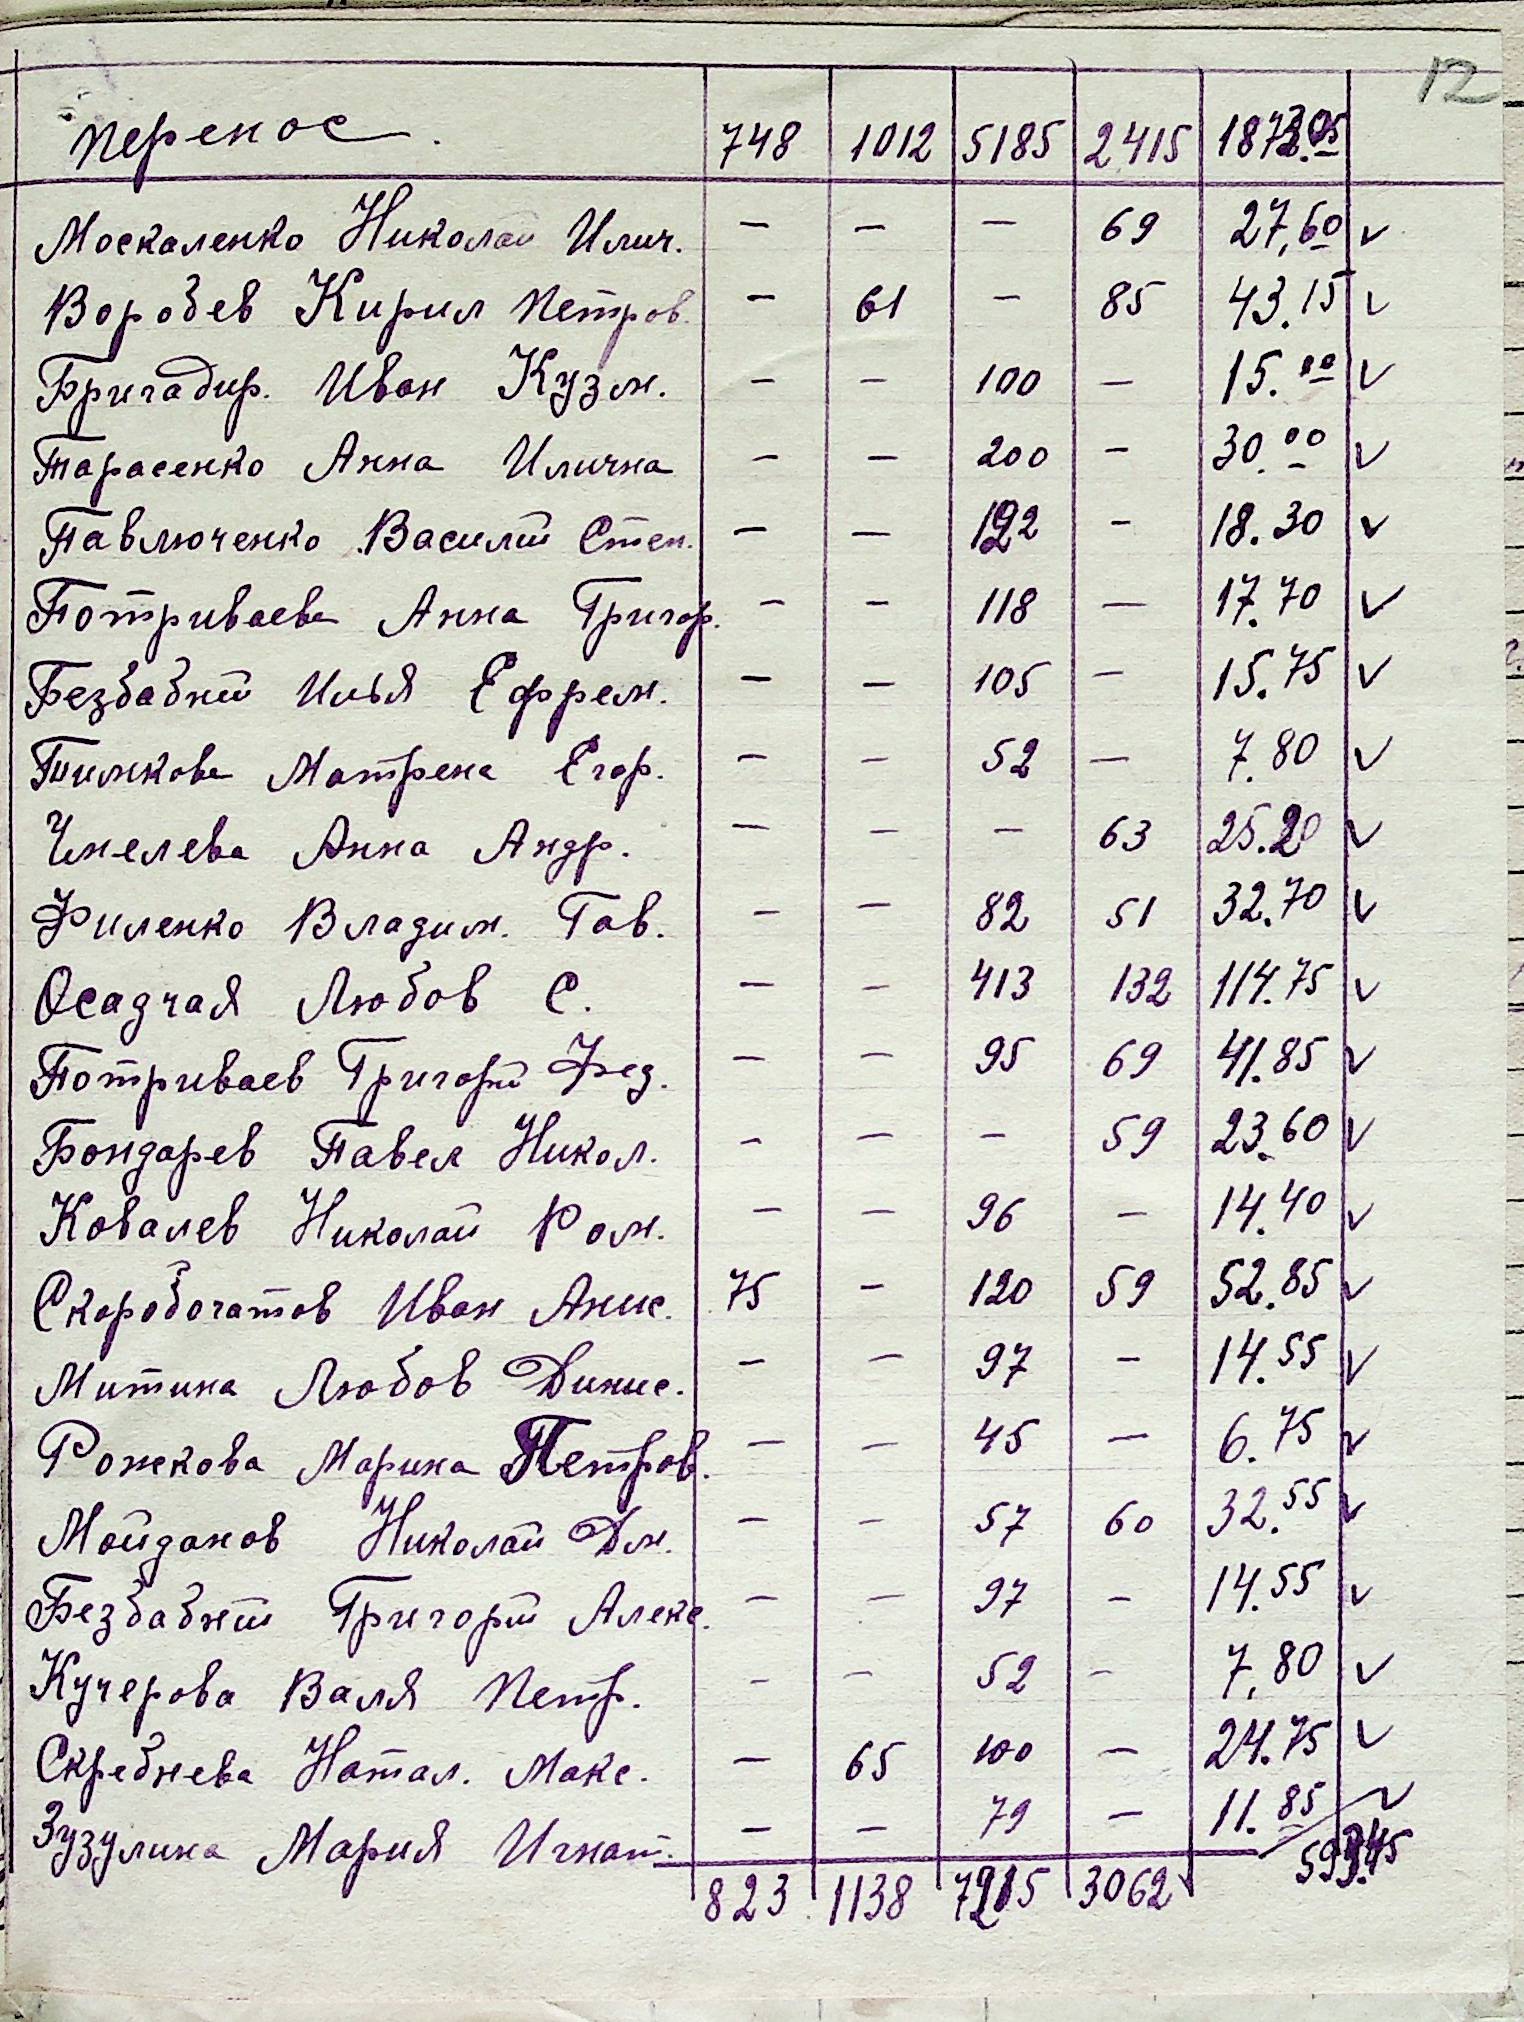 12
Перенос. 748 1012 5185 2415
Москаленко Николай Илич. — — — 69 27,60 ✓
Воробев Кирил Петров. — 61 — 85 43.15 ✓
Бригадир. Иван Кузм. — — 100 — 15.00 ✓
Тарасенко Анна Илична — — 200 — 30.00 ✓
Павлюченко Василий Степ. — — 122 — 18.30 ✓
Потриваева Анна Григор. — — 118 — 17.70 ✓
Безбабний Илья Ефрем. — — 105 — 15.75 ✓
Пимкова Матрена Егор. — — 52 — 7.80 ✓
Чмелева Анна Андр. — — — 63 25.20 ✓
Филенко Владим. Гав. — — 82 51 32.70 ✓
Осадчая Любов С. — — 413 132 114.75 ✓
Потриваев Григорий Фед. — — 95 69 41.85 ✓
Бондарев Павел Никол. — — — 59 23.60 ✓
Ковалев Николай Ром. — — 96 — 14.40 ✓
Скоробогатов Иван Анис. 75 — 120 59 52.85 ✓
Митина Любов Динис. — — 97 — 14.55 ✓
Рожкова Марина Петров. — — 45 — 6.75 ✓
Мойданов Николай Дм. — — 57 60 32.55 ✓
Безбабний Григорий Алекс. — — 97 — 14.55 ✓
Кучерова Валя Петр. — — 52 — 7,80 ✓
Скребнева Натал. Макс. — 65 100 — 24.75 ✓
Зузулина Мария Игнат. — — 79 — 11.85 ✓
823 1138 3062